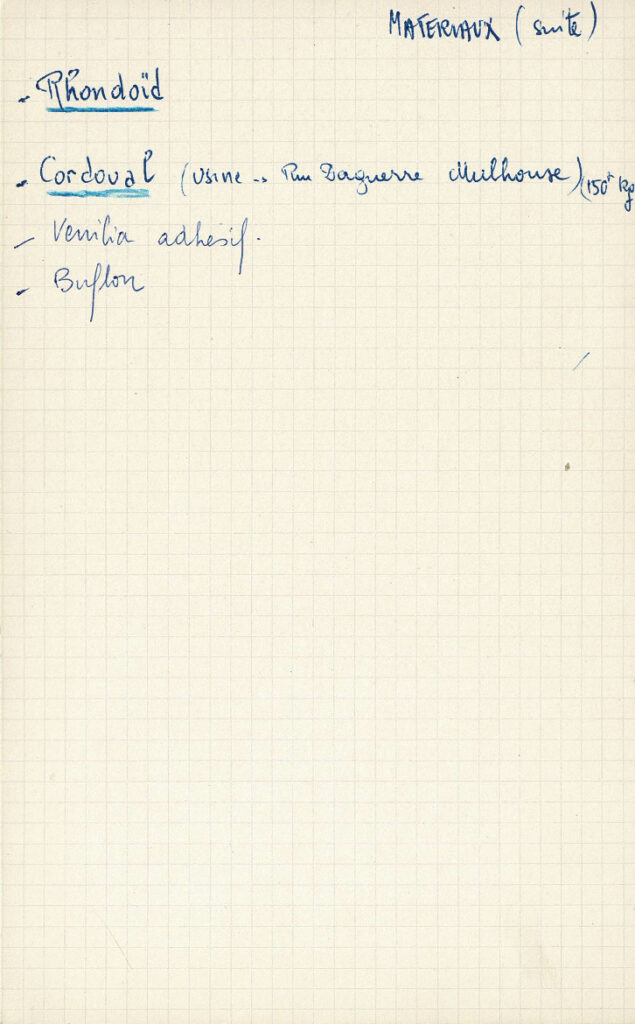 MATERIAUX (suite)
- Rhondoïd
- Cordoual (usine -- Rue Daguerre Mulhouse) (150F kg
- Venilia adhésif.
- Buflon